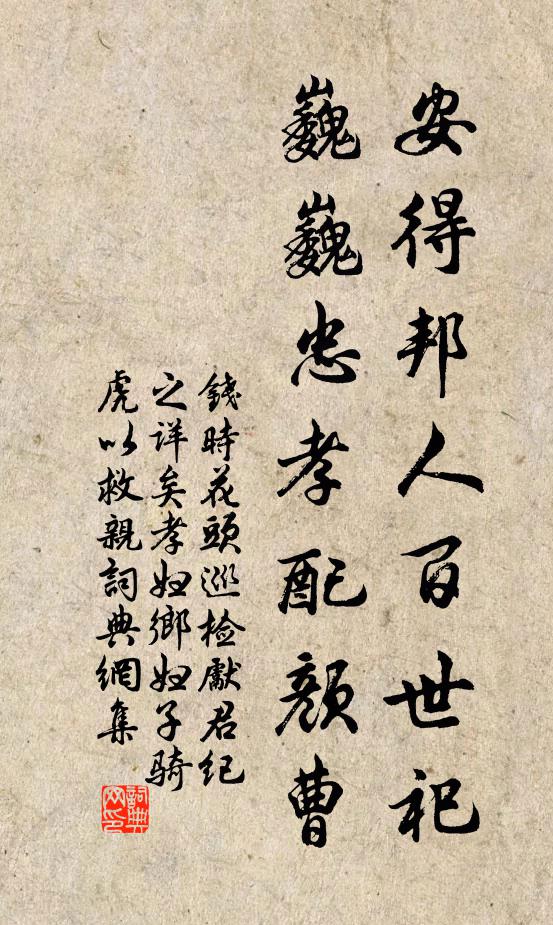 安得邦人百世祀
巍巍忠孝配顏曹
錢時花頭巡檢獻君紀
之詳矣孝婦鄉婦子騎
虎以救親詞典網集
詞典网印